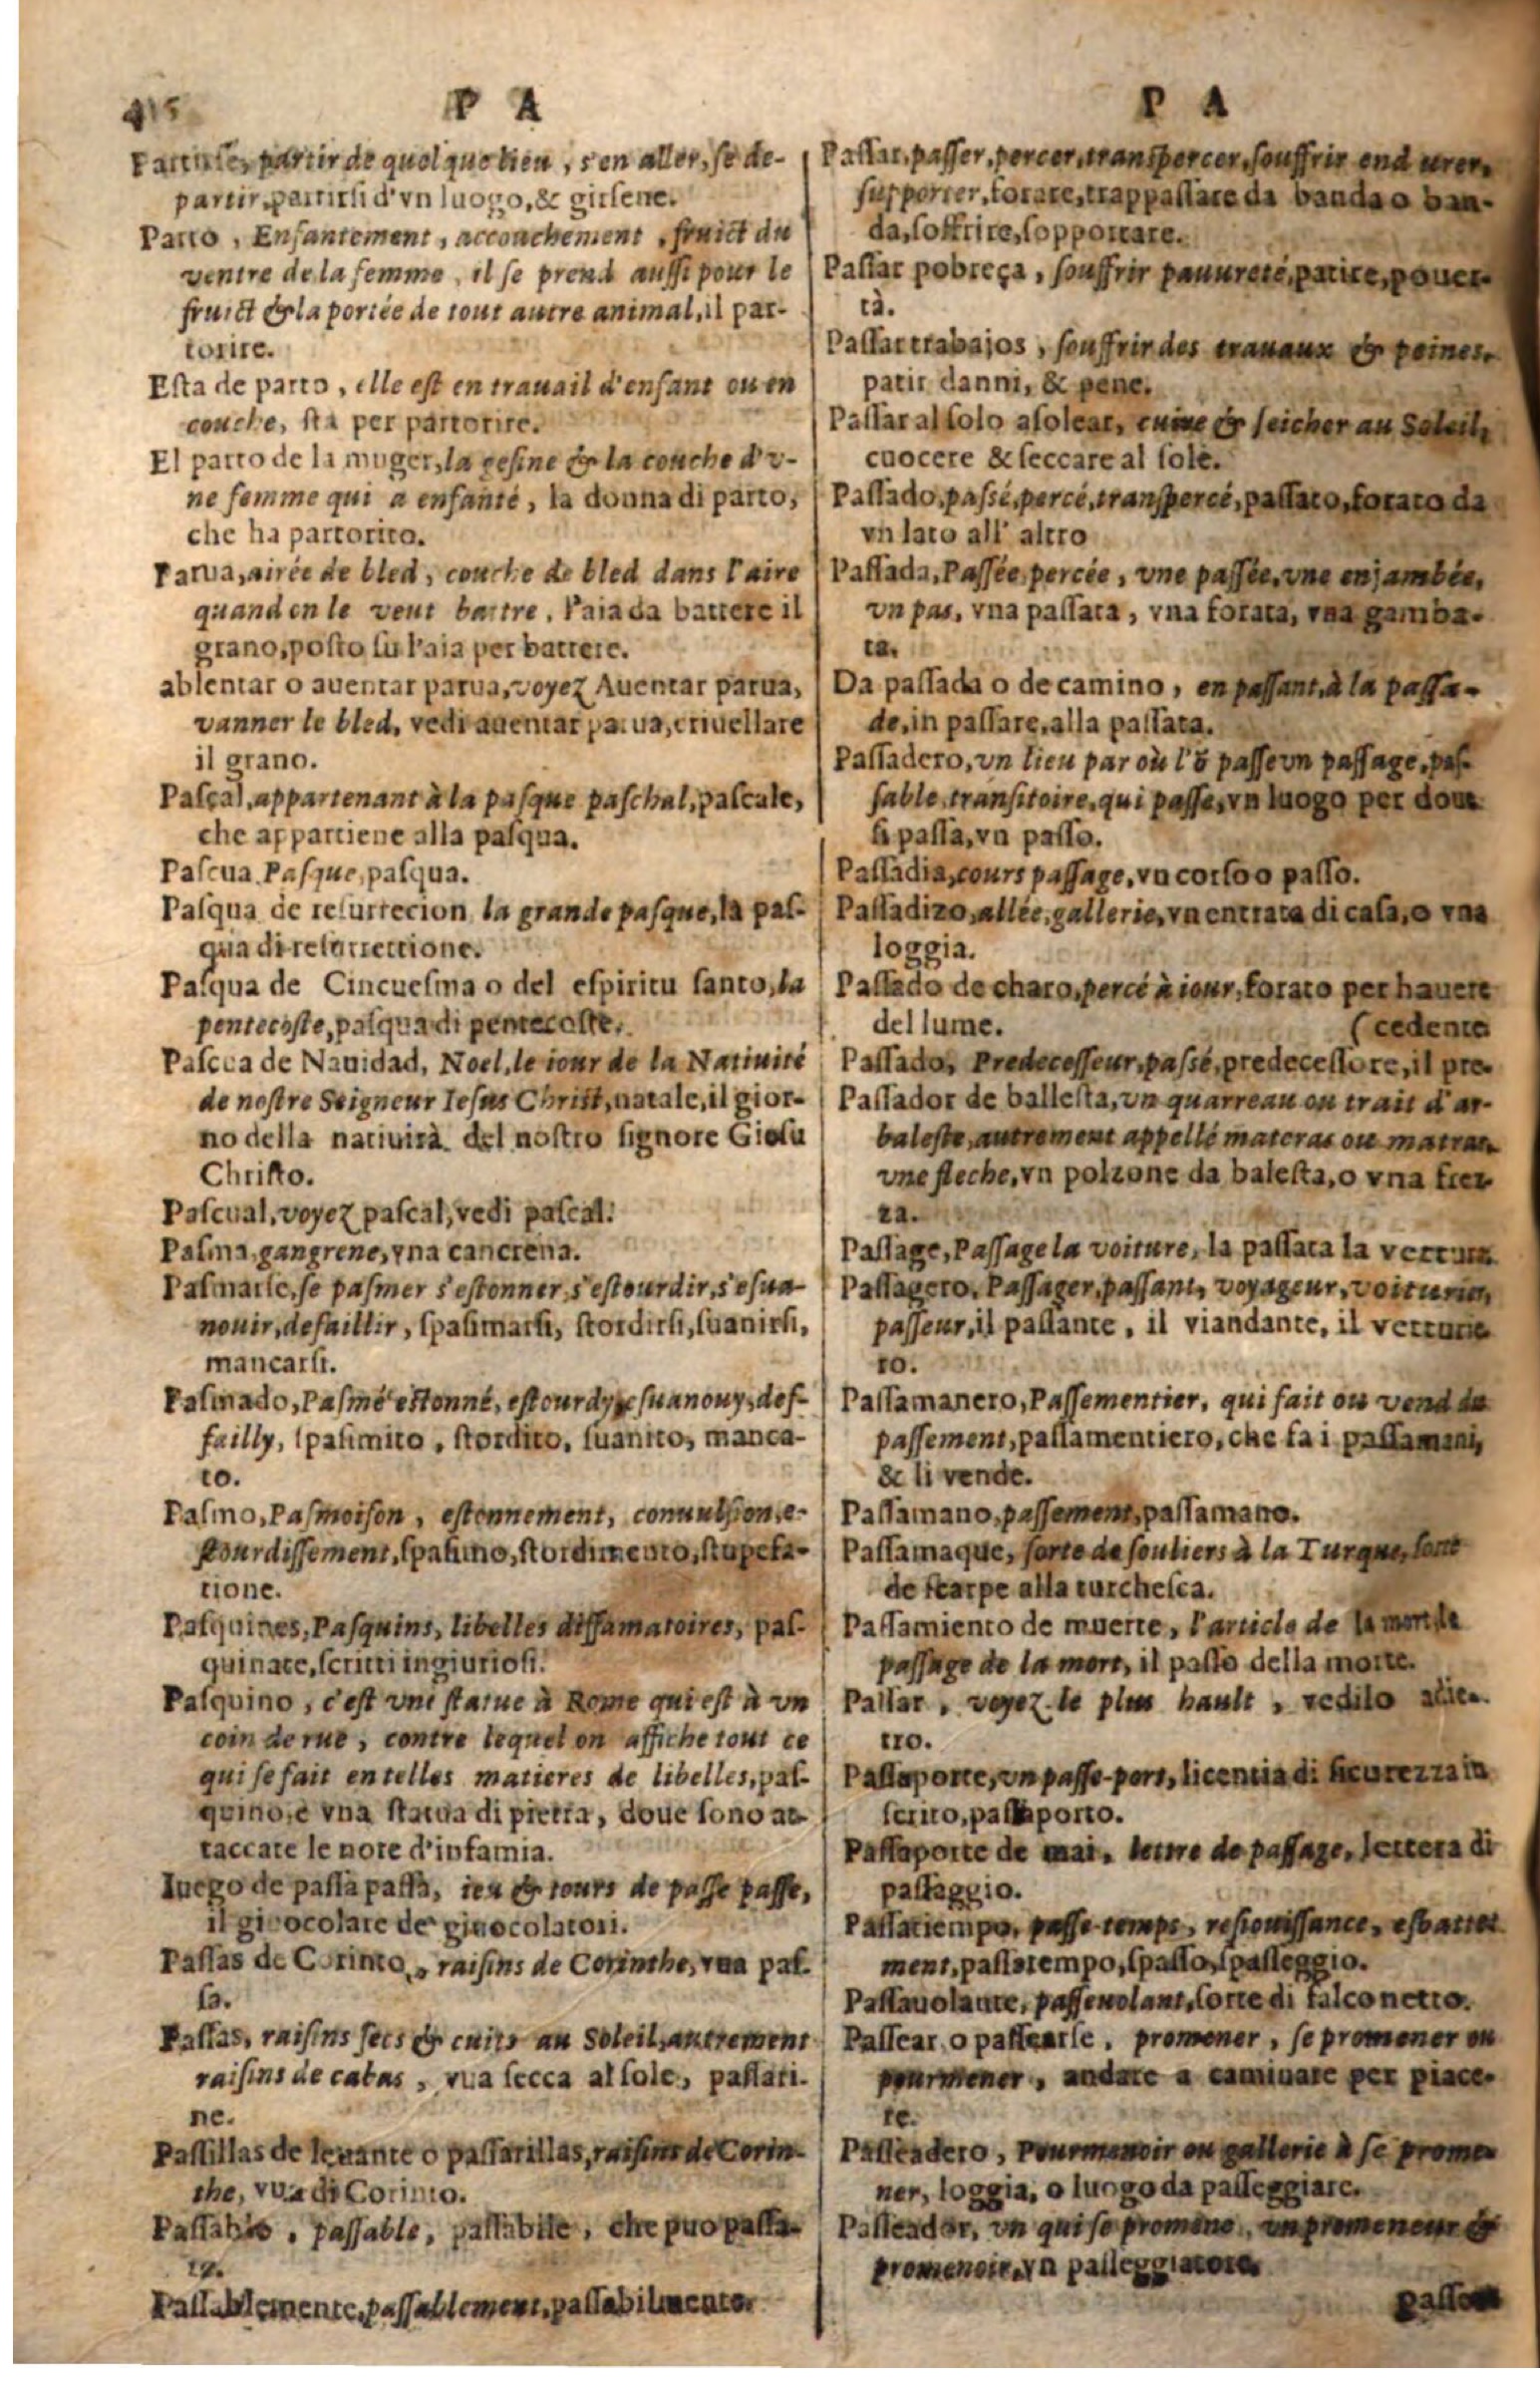 P A
Partirse, partir de quelque lieu, s'en aller, se de-
partir, partirsi d'vn luogo, & girsene.
Parto, Enfantement, accouchement, fruict du
ventre de la femme, il se prend aussi pour le
fruict & la portée de tout autre animal, il par-
torire.
Esta de parto, elle est en trauail d'enfant ou en
couche, sta per partorire.
El parto de la muger, la gesine & la couche d'v-
ne femme qui a enfanté, la donna di parto,
che ha partorito.
Parua, airée de bled, couche de bled dans l'aire
quand on le veut battre, l'aia da battere il
grano, posto su l'aia per battere.
ablentar o auentar parua, voyez Auentar parua,
vanner le bled, vedi auentar parua, criuellare
il grano.
Pasçal, appartenant à la pasque paschal, pascale,
che appartiene alla pasqua.
Pascua, Pasque, pasqua.
Pasqua de resurrecion, la grande pasque, la pas-
qua di resurrettione.
Pasqua de Cincuesma o del espiritu santo, la
pentecoste, pasqua di pentecoste.
Pascua de Nauidad, Noel, le iour de la Natiuité
de nostre Seigneur Iesus Christ, natale, il gior-
no della natiuità del nostro signore Giesu
Christo.
Pascual, voyez pascal, vedi pascal.
Pasma, gangrene, vna cancrena.
Pasmarse, se pasmer s'estonner, s'estourdir, s'esua-
nouir, defaillir, spasimarsi, stordirsi, suanirsi,
mancarsi.
Pasmado, Pasmé estonné, estourdy, esuanouy, def-
failly, spasimito, stordito, suanito, manca-
to.
Pasmo, Pasmoison, estonnement, conuulsion, e-
stourdissement, spasimo, stordimento, stupefa-
tione.
Pasquines, Pasquins, libelles diffamatoires, pas-
quinate, scritti ingiuriosi.
Pasquino, c'est vne statue à Rome qui est à vn
coin de rue, contre lequel on affiche tout ce
qui se fait en telles matieres de libelles, pas-
quino, è vna statua di pietra, doue sono at-
taccate le note d'infamia.
Iuego de passa passa, ieu & tours de passe passe,
il giuocolare de giuocolatori.
Passas de Corinto, raisins de Corinthe, vua pas-
sa.
Passas, raisins secs & cuits au Soleil, autrement
raisins de cabas, vua secca al sole, passari-
ne.
Passillas de leuante o passarillas, raisins de Corin-
the, vua di Corinto.
Passable, passable, passabile, che puo passa-
re.
Passablemente, passablement, passabilmente.
P A
Passar, passer, percer, transpercer, souffrir endurer,
supporter, forare, trappassare da banda o ban-
da, soffrire, sopportare.
Passar pobreça, souffrir pauureté, patire, pouer-
tà.
Passar trabajos, souffrir des trauaux & peines,
patir danni, & pene.
Passar al solo asolear, cuire & seicher au Soleil,
cuocere & seccare al sole.
Passado, passé, percé, transpercé, passato, forato da
vn lato all' altro
Passada, Passée, percée, vne passée, vne enjambée,
vn pas, vna passata, vna forata, vna gamba-
ta.
Da passada o de camino, en passant, à la passa-
de, in passare, alla passata.
Passadero, vn lieu par où l'õ passe vn passage, pas-
sable, transitoire, qui passe, vn luogo per doue
si passa, vn passo.
Passadia, cours passage, vn corso o passo.
Passadizo, allée, gallerie, vn entrata di casa, o vna
loggia.
Passado de charo, percé à iour, forato per hauere
del lume. (cedente
Passado, Predecesseur, passé, predecessore, il pre-
Passador de ballesta, vn quarreau ou trait d'ar-
baleste, autrement appellé materas ou matras,
vne fleche, vn polzone da balesta, o vna frez-
za.
Passage, Passage la voiture, la passata la vettura.
Passagero, Passager, passant, voyageur, voiturier,
passeur, il passante, il viandante, il vetturie-
ro.
Passamanero, Passementier, qui fait ou vend du
passement, passamentiero, che fa i passamani,
& li vende.
Passamano, passement, passamano.
Passamaque, sorte de souliers à la Turque, sorte
de scarpe alla turchesca.
Passamiento de muerte, l'article de la mort, le
passage de la mort, il passo della morte.
Passar, voyez le plus hault, vedilo adie-
tro.
Passaporte, vn passe-port, licentia di sicurezza in
scrito, passaporto.
Passaporte de mai, lettre de passage, lettera di
passaggio.
Passatiempo, passe-temps, resiouissance, esbatte-
ment, passatempo, spasso, spasseggio.
Passauolante, passeuolant, sorte di falconetto.
Passear o passearse, promener, se promener ou
pourmener, andare a caminare per piace-
re.
Passeadero, Pourmenoir ou gallerie à se prome-
ner, loggia, o luogo da passeggiare.
Passeador, vn qui se promene, vn promeneur &
promenoir, vn passeggiatore.